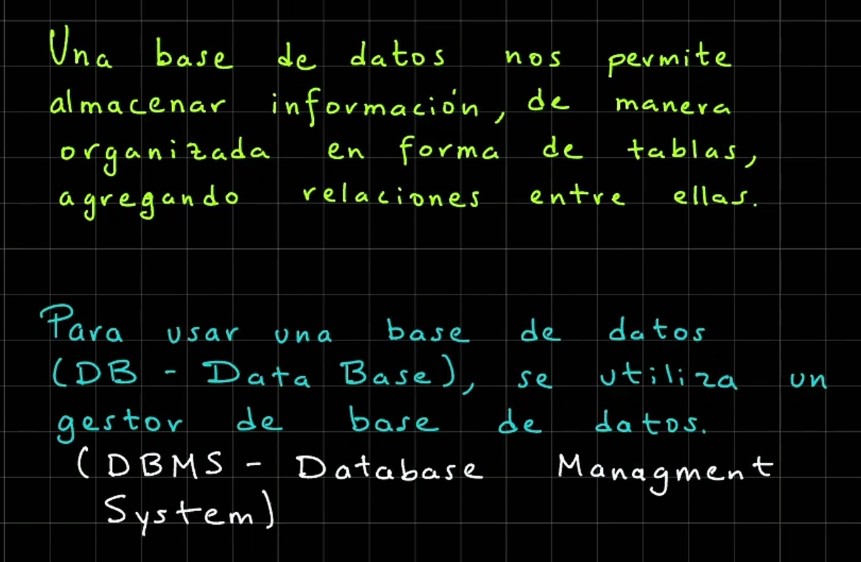 Una base de datos nos permite
almacenar información, de manera
organizada en forma de tablas,
agregando relaciones entre ellas.
Para usar una base de datos
(DB - Data Base), se utiliza un
gestor de base de datos.
(DBMS - Database Managment
System)